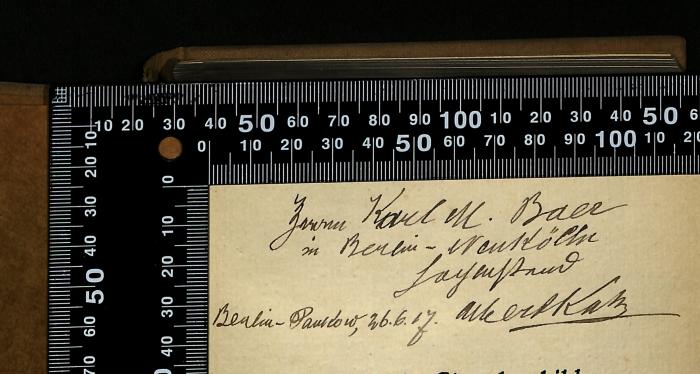 10 20 30 40 50 60 70 80 90 100 10 20 30 40 50 6
0 10 20 30 40 50 60 70 80 90 100 10 2
10 20 30 40 50 60 70
0 10 20 30 40
Herrn Karl M. Baer
in Berlin-Neukölln
Berlin-Pankow, 26.6.17. Albert Katz